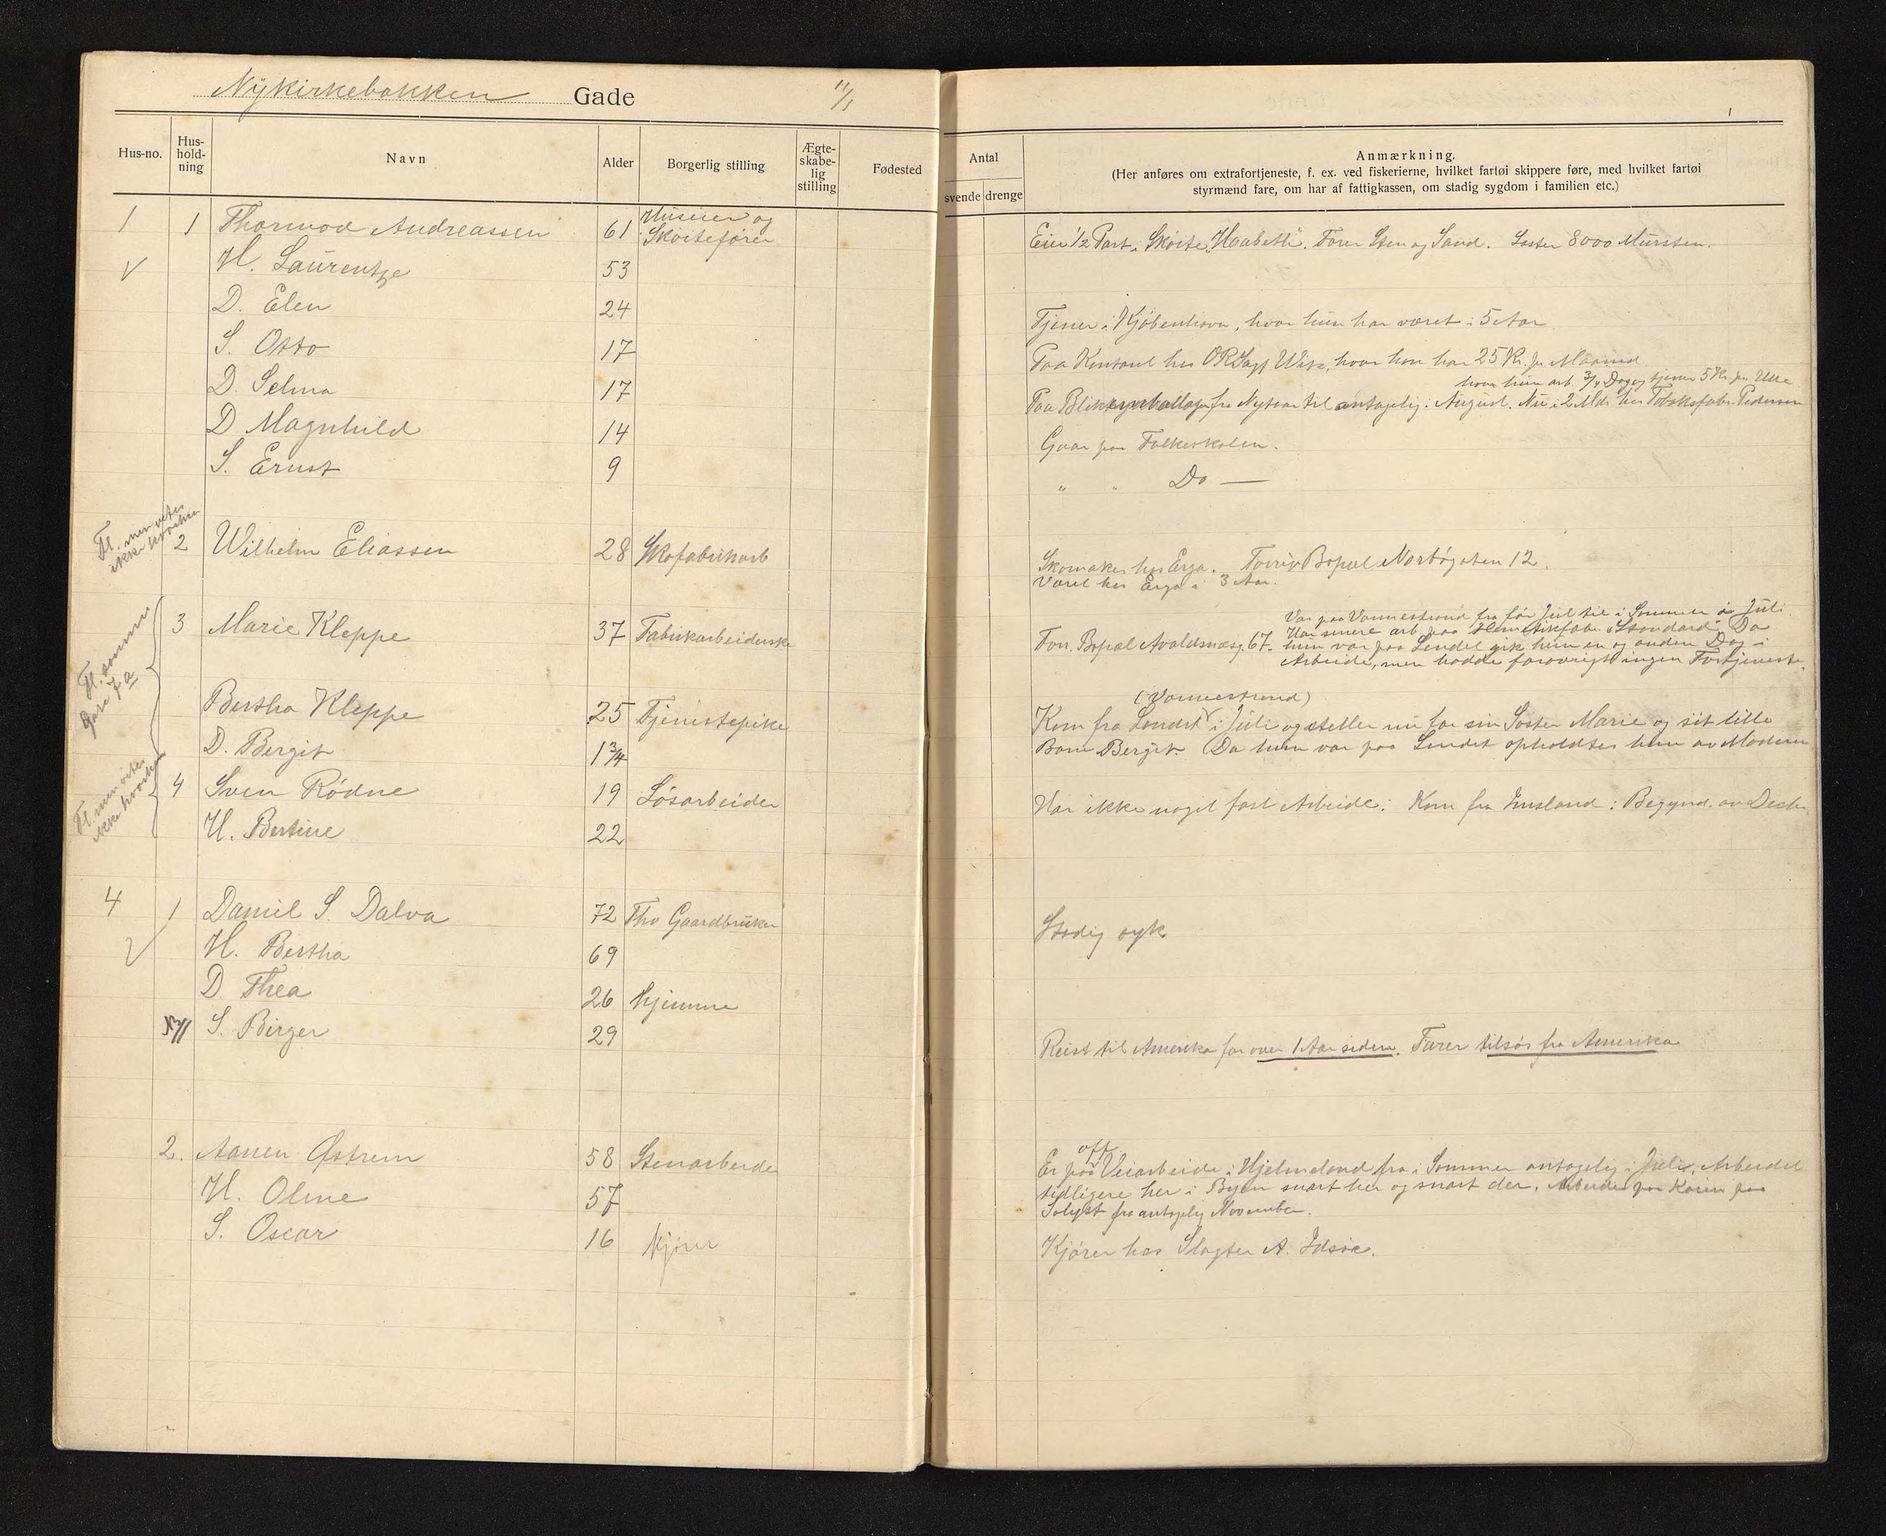 Nykirkebakken Gade 11/1
Hus-no. Hus-hold-ning Navn Alder Borgerlig stilling Ægte-skabe-lig stilling Fødested
Antal svende drenge
Anmærkning.
(Her anføres om extrafortjeneste, f. ex. ved fiskerierne, hvilket fartøi skippere føre, med hvilket fartøi
styrmænd fare, om har af fattigkassen, om stadig sygdom i familien etc.)
1 1 Thormod Andreassen 61 Huseier og Skøitefører Eier 1/2 Part i Skøite "Haabet". Fører Sten og Sand. Laster 8000 Mursten.
V H. Laurentze 53
D. Elen 24 Tjener i Kjøbenhavn, hvor hun har været i 5 Aar
S. Otto 17 Paa Kontoret hos hvor han har 25 Kr. pr Maaned
hvor hun arb. 3/4 Dag og tjener 5 Kr. pr. Uke
D. Selma 17 Paa Blikkemballage fra Nytaar til antagelig i August. Nu i 2 Mdr hos Tobaksfabr. Pedersen
D Magnhild 14 Gaar paa Folkeskolen.
S. Ernst 9 " " Do —
Fl. men vites
ikke hvorhen
2 Wilhelm Eliassen 28 Skofabrikarb Skomaker hos Erga. Forrig Bopæl Norbøgaten 12.
Været hos Erga i 3 Aar.
Fl. sommer
gate 7 a
Var paa Vannestrand fra før Jul til i Sommer i Juli
Har senere arb paa Hermetikfabr. "Standard" Da
3 Marie Kleppe 37 Fabrikarbeiderske Forr. Bopæl Avaldsnesg. 67. hun var paa Landet gik hun en og anden Dag i
Arbeide, men hadde forøvrigt ingen Fortjeneste.
(Vannestrand)
Bertha Kleppe 25 Tjenestepike Kom fra Landet i Juli og steller nu for sin Søster Marie og sit lille
D. Bergit 1 3/4 Barn Bergit. Da hun var paa Landet opholdtes hun av Moderen
Fl. men vites
ikke hvorhen
4 Sven Rødne 19 Løsarbeider Har ikke noget fast Arbeide. Kom fra Imsland i Begynd. av Decbr.
H. Bertine 22
4 1 Daniel S. Dalva 72 Fhv Gaardbruker Stadig syk
V H. Bertha 69
D. Thea 26 hjemme
S. Birger 29 Reist til Amerika for over 1 Aar siden. Farer tilsøs fra Amerika
2. Aanen Østrem 58 Stenarbeide Er paa off. Veiarbeide i Hjelmeland fra i Sommer antagelig i Juli. Arbeidet
tidligere her i Byen snart her og snart der. Arbeider paa Kaien paa
Solyst fra antagelig November.
H. Oline 57
S. Oscar 16 Kjører Kjører hos Slagter A. Idsøe.